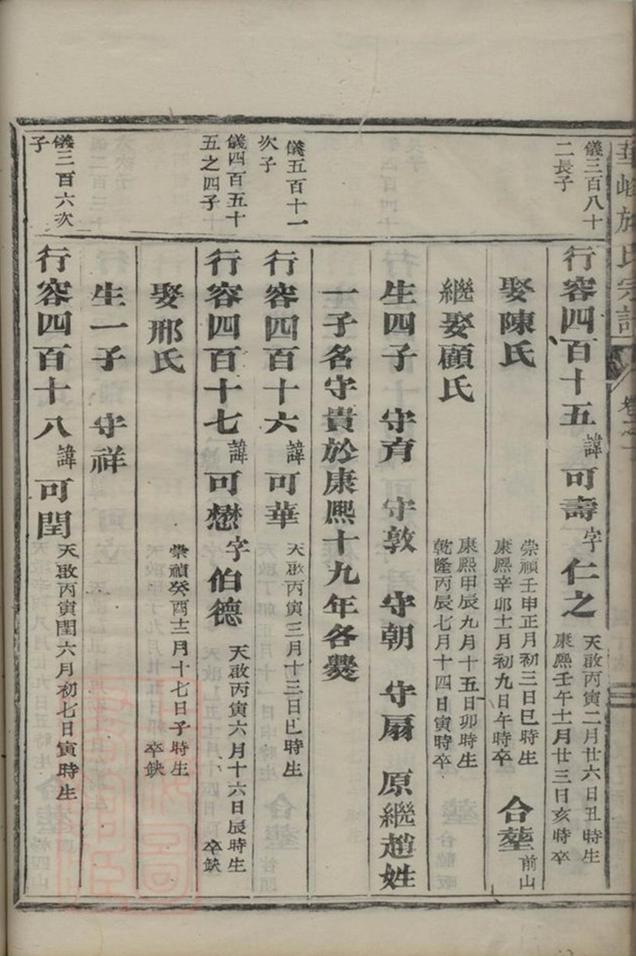 儀三百八十
二長子
行容四百十五 諱可壽 字仁之 天啟丙寅二月廿六日丑時生
康熙壬午十一月廿三日亥時卒
娶陳氏 崇禎壬申正月初三日巳時生
康熙辛卯十一月初九日午時卒 合塟 前山
繼娶顧氏 康熙甲辰九月十五日卯時生
乾隆丙辰七月十四日寅時卒
生四子 守育 守敦 守朝 守扇 原繼趙姓
一子名守貴於康熙十九年各爨
儀五百十一
次子
行容四百十六 諱可華 天啟丙寅三月十三日巳時生
儀四百五十
五之四子
行容四百十七 諱可懋 字伯德 天啟丙寅六月十六日辰時生
卒缺
娶邢氏 崇禎癸酉十二月十七日子時生
卒缺
生一子 守祥
儀三百六次
子
行容四百十八 諱可閏 天啟丙寅閏六月初七日寅時生